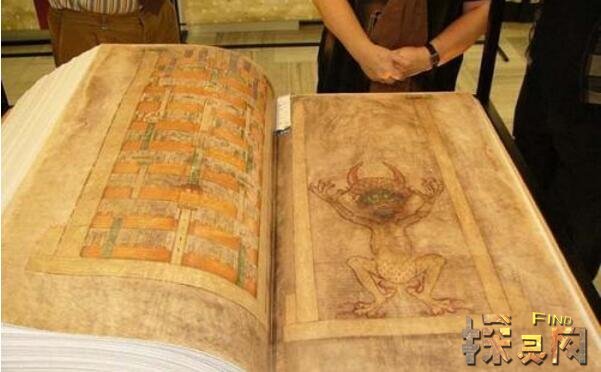 FIND
探灵网